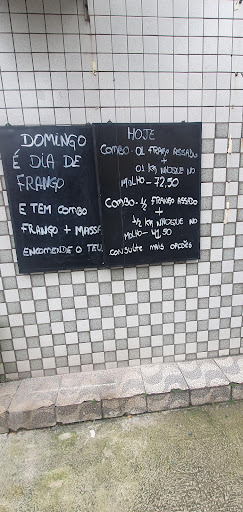 DOMINGO
É DIA DE
FRANGO
E TEM COMBO
FRANGO + MASSA
ENCOMENDE O TEU
HOJE
COMBO - 01 FRANGO ASSADO
+
01 KM NHOQUE NO
MOLHO - 72,50
COMBO - 1/2 FRANGO ASSADO
+
1/2 KM NHOQUE NO
MOLHO - 41,50
CONSULTE MAIS OPÇÕES